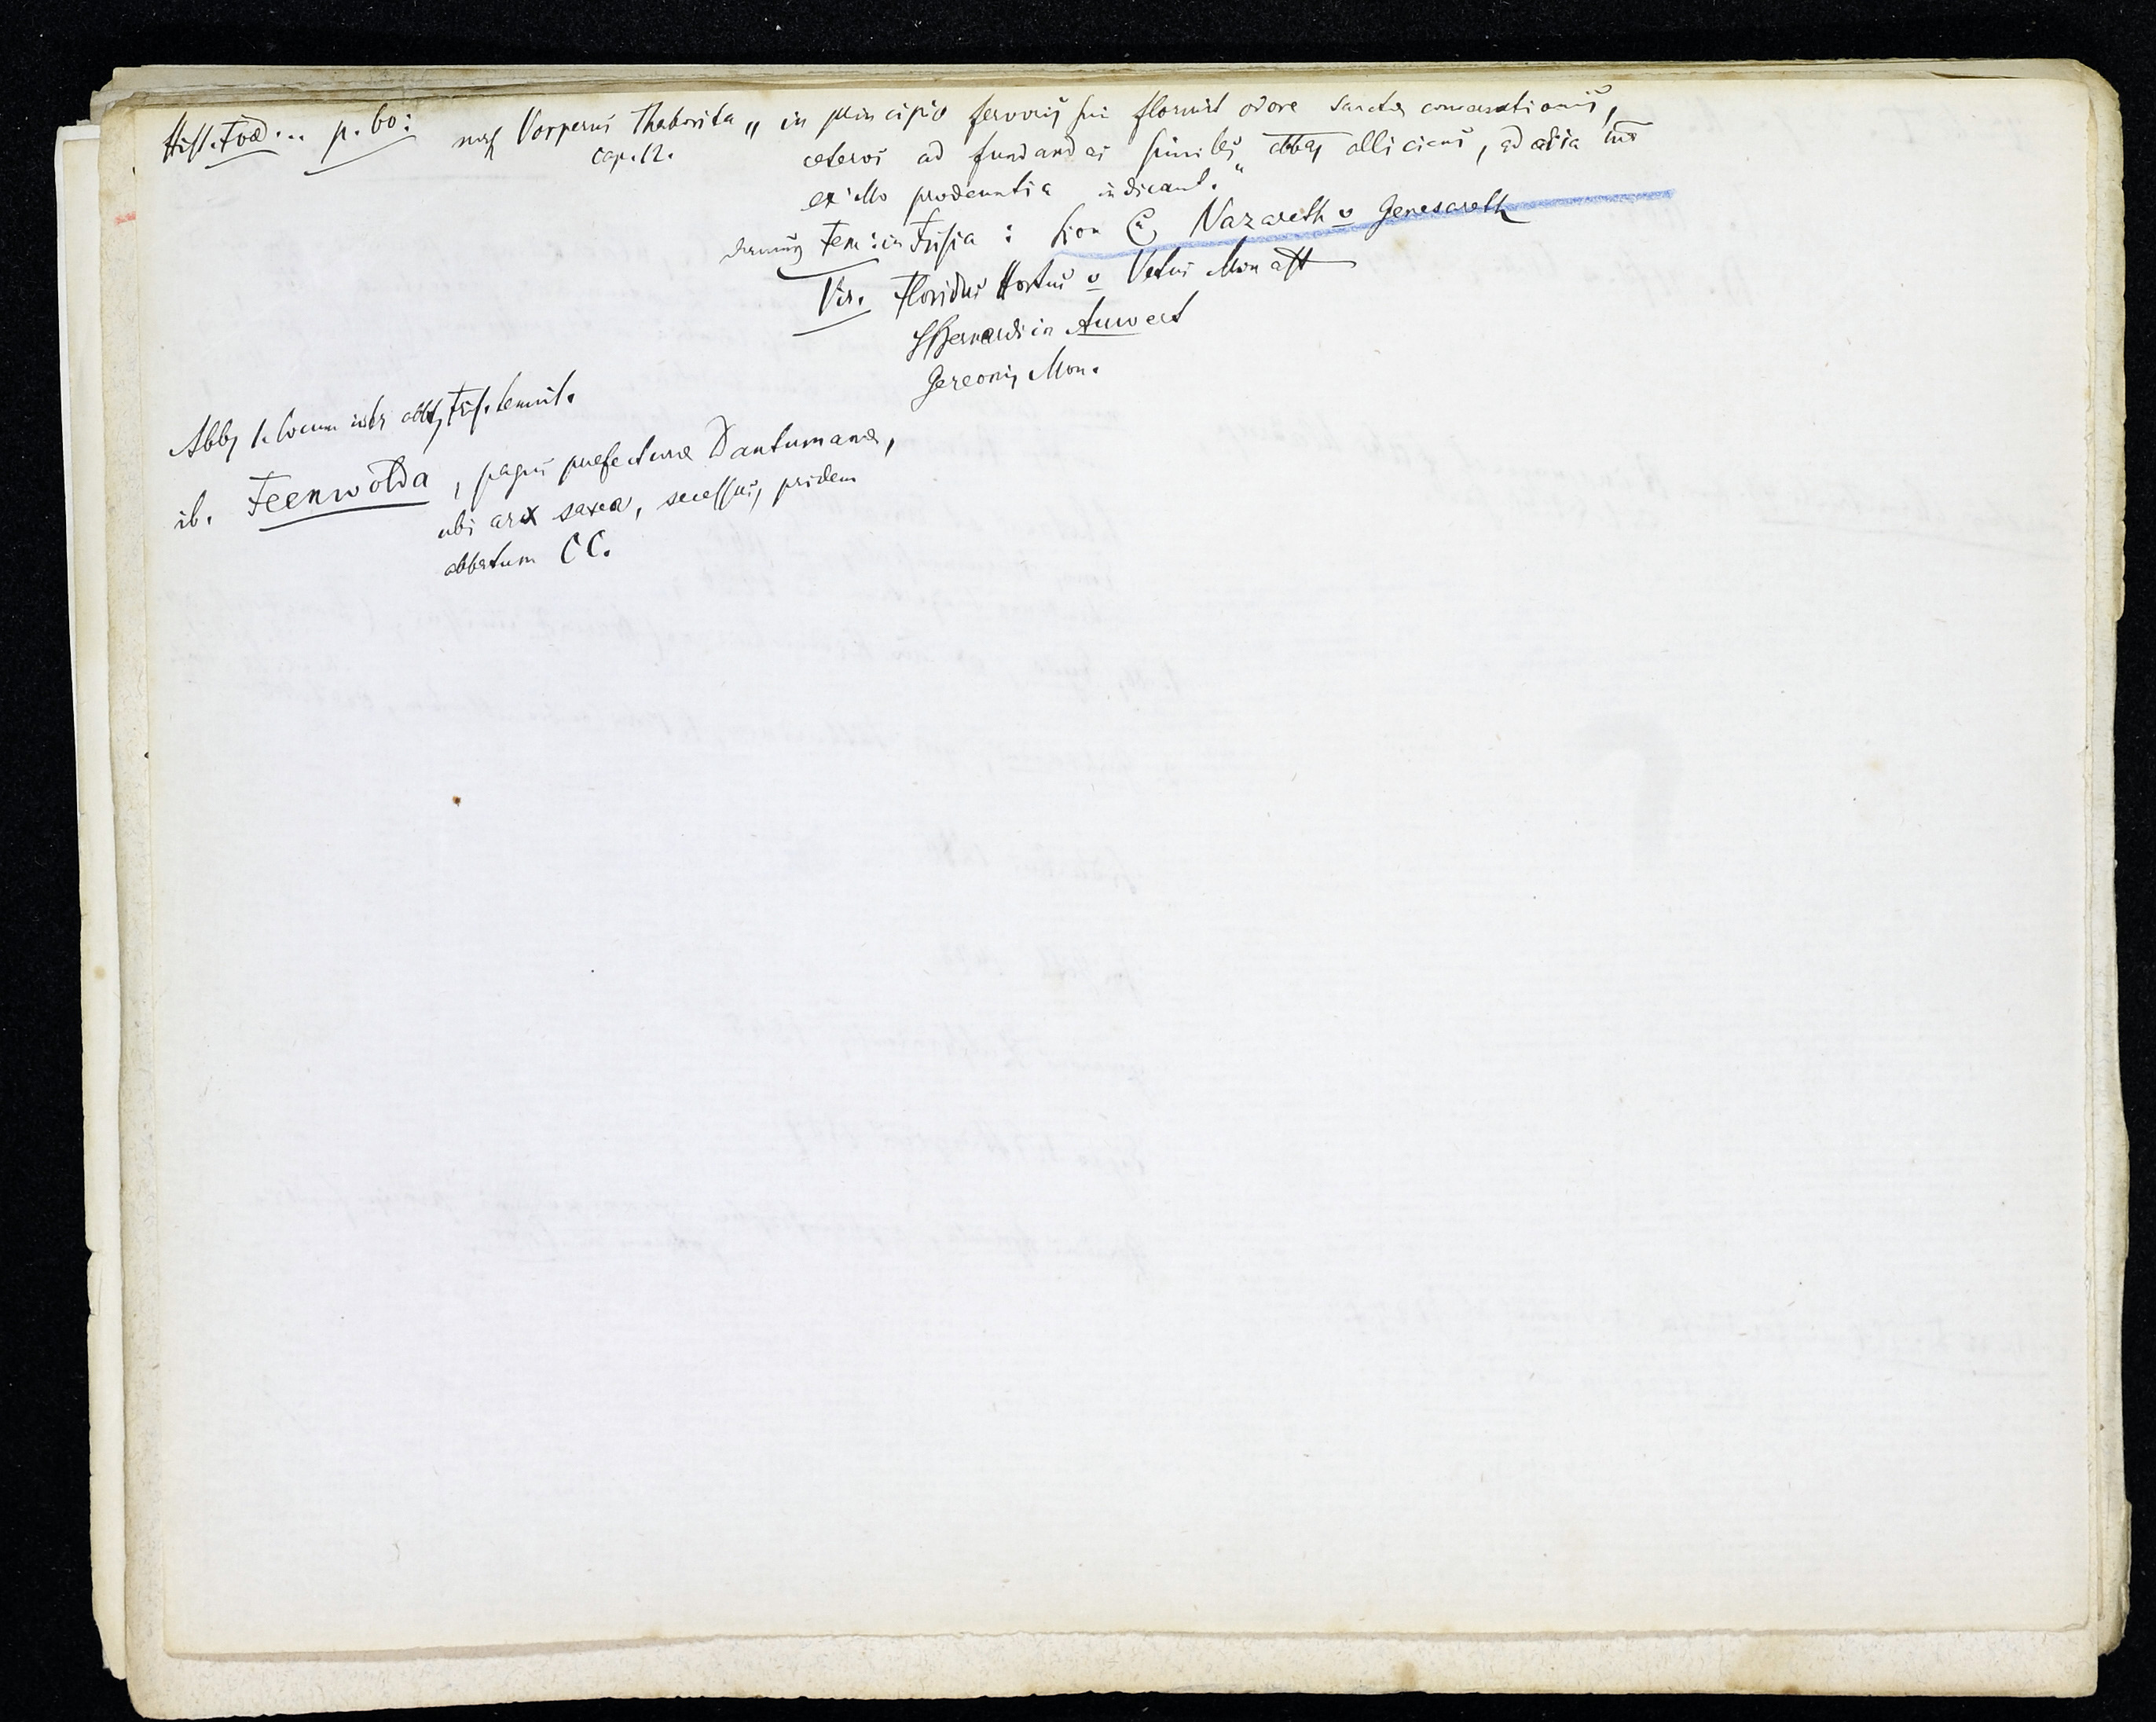 Hist. Foed... p. 60: nach Vorperus Thaborita „ in principio fervoris sui floruit odore sanctae conversationis,
cap. 12. ceteros ad fundandas similes abbas alliciens,
ex illo prodeuntia indicant.“
Fem: in Frisia: Sion Nazareth v Genesareth
Vir. Floridus Hortus v Vetus Monast
S Bernardi in Auwert
Gereonis Mon.
Abbs 1. locum inter abbs Fris. tenuit.
ib. Feenwolda, pagus praefecturae Dantumanae,
ubi arx saxea, secessus, pridem
abbatum CC.